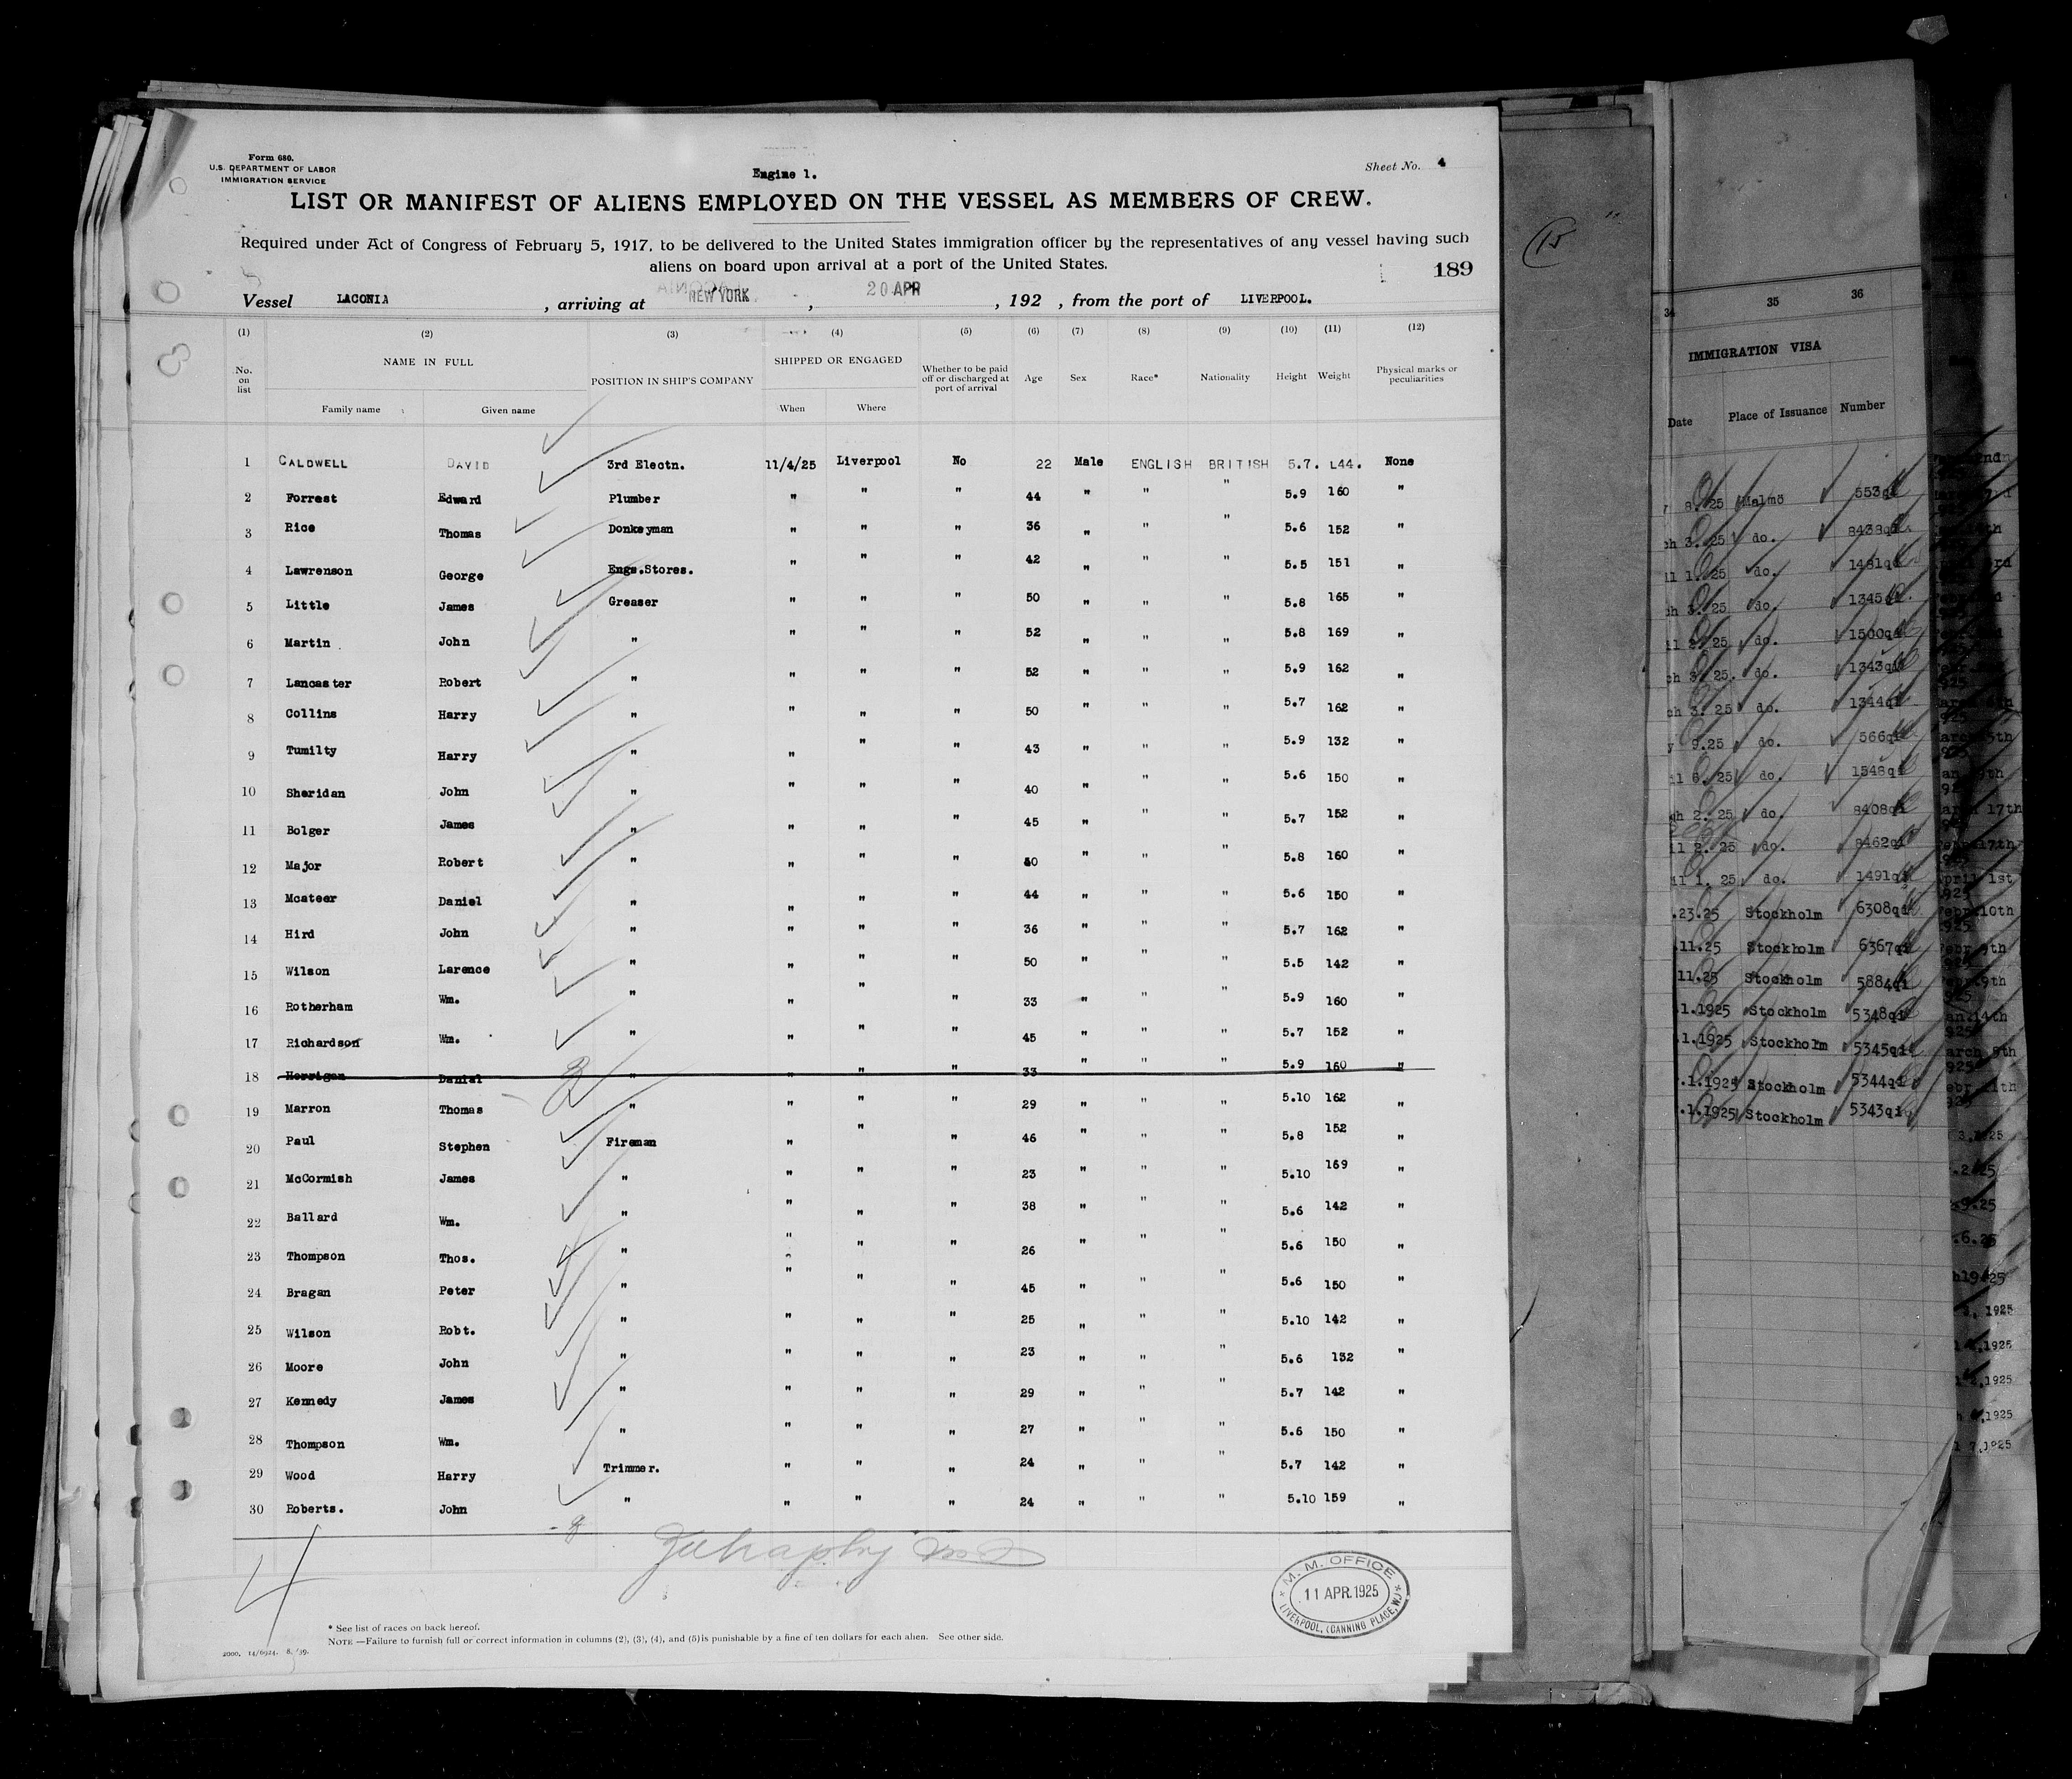 Form 680.
U.S. DEPARTMENT OF LABOR
IMMIGRATION SERVICE
Engine 1.
Sheet No. 4
LIST OR MANIFEST OF ALIENS EMPLOYED ON THE VESSEL AS MEMBERS OF CREW.
Required under Act of Congress of February 5, 1917, to be delivered to the United States immigration officer by the representatives of any vessel having such
aliens on board upon arrival at a port of the United States.
189
Vessel LACONIA , arriving at NEW YORK , 20 APR , 192 , from the port of LIVERPOOL.
(1) (2) (3) (4) (5) (6) (7) (8) (9) (10) (11) (12)
No. on list NAME IN FULL POSITION IN SHIP'S COMPANY SHIPPED OR ENGAGED Whether to be paid off or discharged at port of arrival Age Sex Race* Nationality Height Weight Physical marks or peculiarities
Family name Given name When Where
1 CALDWELL DAVID 3rd Electn. 11/4/25 Liverpool No 22 Male ENGLISH BRITISH 5.7. 144. None
2 Forrest Edward Plumber " " " 44 " " " 5.9 160 "
3 Rice Thomas Donkeyman " " " 36 " " " 5.6 152 "
4 Lawrenson George Engs.Stores. " " " 42 " " " 5.5 151 "
5 Little James Greaser " " " 50 " " " 5.8 165 "
6 Martin John " " " " 52 " " " 5.8 169 "
7 Lancaster Robert " " " " 52 " " " 5.9 162 "
8 Collins Harry " " " " 50 " " " 5.7 162 "
9 Tumilty Harry " " " " 43 " " " 5.9 132 "
10 Sheridan John " " " " 40 " " " 5.6 150 "
11 Bolger James " " " " 45 " " " 5.7 152 "
12 Major Robert " " " " " " " 5.8 160 "
13 Mcateer Daniel " " " " 44 " " " 5.6 150 "
14 Hird John " " " " 36 " " " 5.7 162 "
15 Wilson Larence " " " " 50 " " " 5.5 142 "
16 Rotherham Wm. " " " " 33 " " " 5.9 160 "
17 Richardson Wm. " " " " 45 " " " 5.7 152 "
18 Horrigan Danial " " " " 33 " " " 5.9 160 "
19 Marron Thomas " " " " 29 " " " 5.10 162 "
20 Paul Stephen Fireman " " " 46 " " " 5.8 152 "
21 McCormish James " " " " 23 " " " 5.10 169 "
22 Ballard Wm. " " " " 38 " " " 5.6 142 "
23 Thompson Thos. " " " " 26 " " " 5.6 150 "
24 Bragan Peter " " " " 45 " " " 5.6 150 "
25 Wilson Robt. " " " " 25 " " " 5.10 142 "
26 Moore John " " " " 23 " " " 5.6 132 "
27 Kennedy James " " " " 29 " " " 5.7 142 "
28 Thompson Wm. " " " " 27 " " " 5.6 150 "
29 Wood Harry Trimmer. " " " 24 " " " 5.7 142 "
30 Roberts. John " " " " 24 " " " 5.10 159 "
4
M. M. OFFICE
11 APR.1925
LIVERPOOL, (CANNING PLACE, W.)
* See list of races on back hereof.
NOTE —Failure to furnish full or correct information in columns (2), (3), (4), and (5) is punishable by a fine of ten dollars for each alien. See other side.
2000. 14/6924. 8. /39.
15
34 35 36
IMMIGRATION VISA
Date Place of Issuance Number
8.25 Malmö 553qi
3.25 do. 8438qi
1.25 do. 1481qi
3.25 do. 1345qi
2.25 do. 1500qi
3.25. do. 1343qi
3.25 do. 1344qi
9.25 do. 566qi
6.25 do. 1548qi
2.25 do. 8408qi
2.25 do. 8462qi
1.25 do. 1491qi
.23.25 Stockholm 6308qi
.11.25 Stockholm 6367qi
11.25 Stockholm 5884qi
.1.1925 Stockholm 5348qi
.1.1925 Stockholm 5345qi
.1.1925 Stockholm 5344qi
.1.1925 Stockholm 5343qi